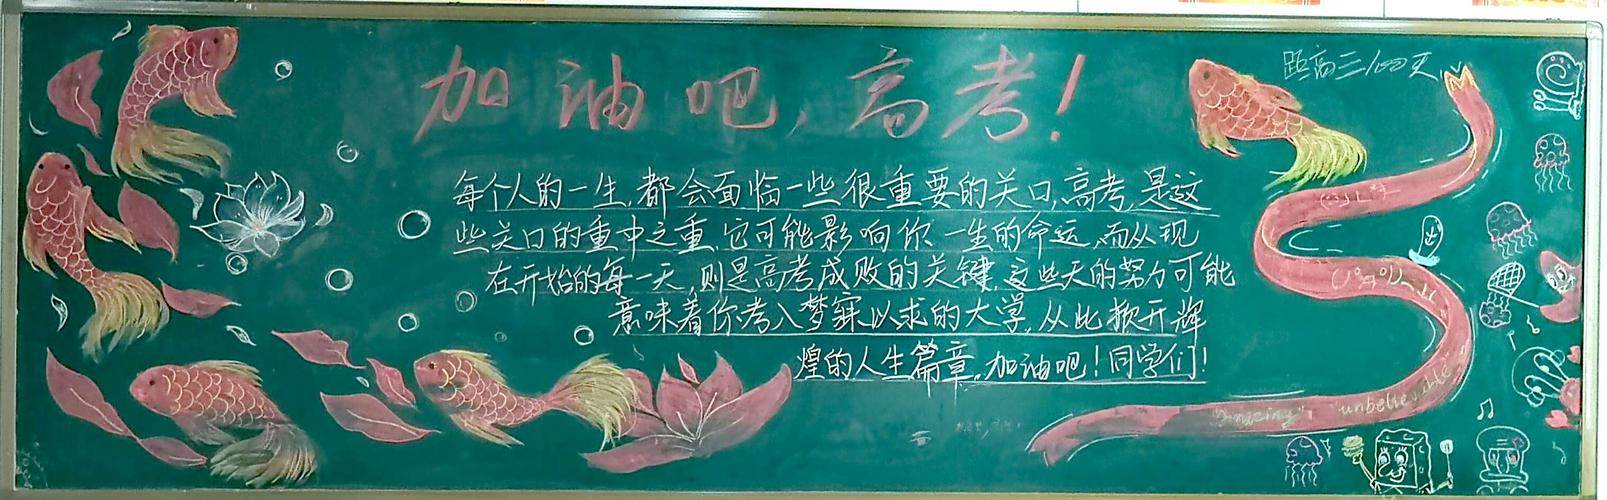 加油吧，高考！
距高三100天
每个人的一生，都会面临一些很重要的关口，高考，是这
些关口的重中之重，它可能影响你一生的命运，而从现
在开始的每一天，则是高考成败的关键，这些天的努力可能
意味着你考入梦寐以求的大学，从此掀开辉
煌的人生篇章。加油吧！同学们！
"amazing" unbelievable